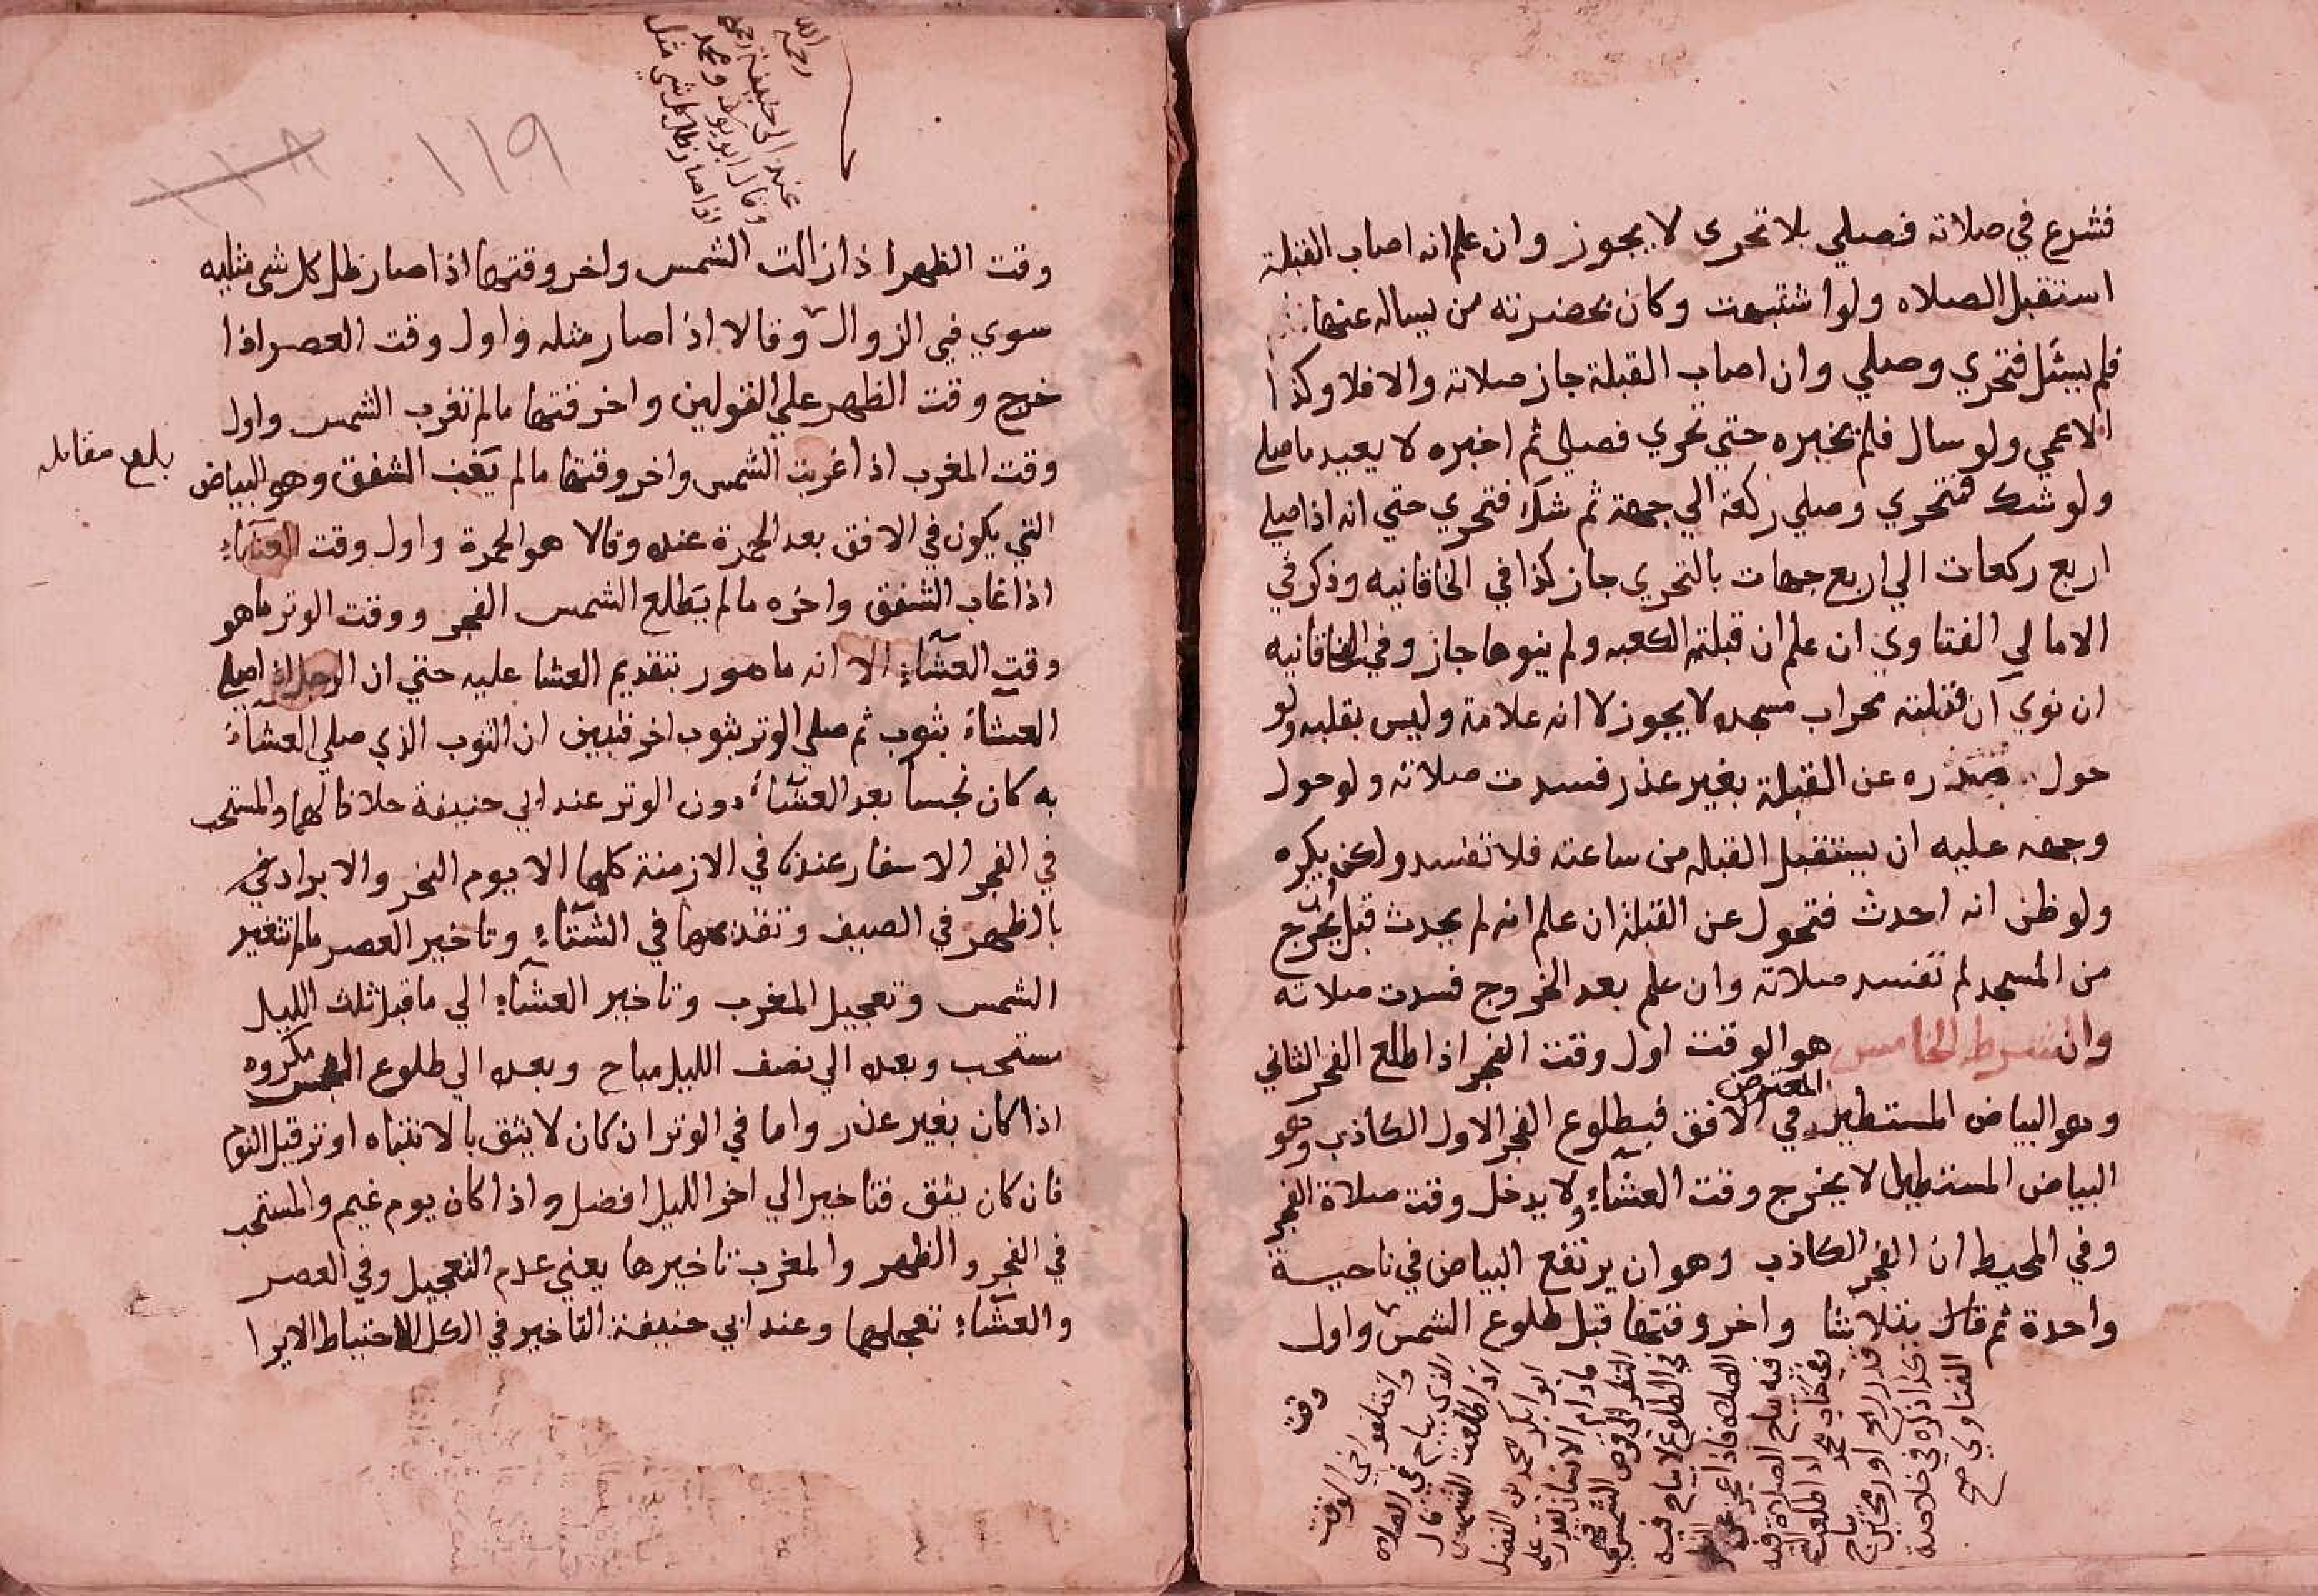 فشرع في صلاته فصلي بلا تحرى لا يجوز وان علم انه اصاب القبلة
استقبل الصلاه ولو اشتبهت وكان بحضرته من يساله عنها
فلم يسئل فتحري وصلي وان اصاب القبلة جاز صلاته والا فلا وكذا
الاعمي ولو سال فلم يخبره حتي تحري فصلي ثم اخبره لا يعيد ما صلي
ولو شك فتحري وصلي ركعة الي جهة ثم شك فتحري حتي انه اذا صلي
اربع ركعات الي اربع جهات بالتحري جاز كذا في الخاقانيه وذكر في
الامالي الفتاوي ان علم ان قبلته الكعبه ولم ينوها جاز وفي الخاقانيه
ان نوي ان قبلته محراب مسجده لا يجوز لا انه علامة وليس بقلبه ولو
حول صدره عن القبلة بغير عذر فسدت صلاته ولو حول
وجهه عليه ان يستقبل القبله من ساعته فلا تفسد ولكن يكره
ولو ظن انه احدث فتحول عن القبلة ان علم انه لم يحدث قبل ان يخرج
من المسجد لم تفسد صلاته وان علم بعد الخروج فسدت صلاته
وان شرط الخامس هو الوقت اول وقت الفجر اذا طلع الفجر الثاني
وهو البياض المستطير المعترض في الافق فبطلوع الفجر الاول الكاذب وهو
البياض المستطيل لا يخرج وقت العشاء ولا يدخل وقت صلاة الفجر
وفي المحيط ان الفجر الكاذب وهو ان يرتفع البياض في ناحية
واحدة ثم قال بتلاشا واخر وقتها قبل طلوع الشمس واول
وقت
واختلفو في الوقت
الذي يباح في الصلاه
اذا طلعت الشمس قال
ابو بكر محمد بن الفضل
ما دام الانسان يقدر علي
النظر الي قرص الشمس فهي
في الطلوع لا يباح فيه
الصلاه فاذا عجز عن النظر
فيه يباح الصلاة فيه
قدر رمح او رمحين يباح
كذا ذكره في خلاصة
الفتاوي صح
١١٩
رحمه الله
عند ابي حنيفة
وقال ابو يوسف ومحمد
اذا صار ظل كل شي مثل
وقت الظهر اذا زالت الشمس واخر وقتها اذا صار ظل كل شي مثليه
سوي في الزوال وقالا اذا صار مثله واول وقت العصر اذا
خرج وقت الظهر علي القولين واخر قتها مالم تغرب الشمس واول
وقت المغرب اذا غربت الشمس واخر وقتها مالم يغب الشفق وهو البياض
بلغ مقابله
التي يكون في الافق بعد الحمرة عنده وقالا هو الحمرة واول وقت العشاء
اذا غاب الشفق واخره مالم يطلع الشمس الفجر ووقت الوتر ما هو
وقت العشاء الا انه مامور بتقديم العشا عليه حتي ان الرجل اذا صلي
العشاء بثوب ثم صلي الوتر بثوب اخر فتبين ان الثوب الذي صلي العشاء
به كان نجسا بعد العشاء دون الوتر عند ابي حنيفة خلافا لهما والمستحب
في الفجر الاسفار عندنا في الازمنة كلها الا يوم النحر والابراد في
بالظهر في الصيف وتقديمها في الشتاء وتاخير العصر مالم تتغير
الشمس وتعجيل المغرب وتاخير العشاء الي ما قبل ثلث الليل
مستحب وبعده الي نصف الليل مباح وبعده الي طلوع مكروه
اذا كان بغير عذر واما في الوتر ان كان لا يثق بالانتباه اوتر قبل النوم
فان كان يثق فتاخير الي اخر الليل افضل واذا كان يوم غيم والمستحب
في الفجر والظهر والمغرب تاخيرها يعني عدم التعجيل وفي العصر
والعشاء تعجلها وعند ابي حنيفة التاخير في الكل الاحتياط الا يرا